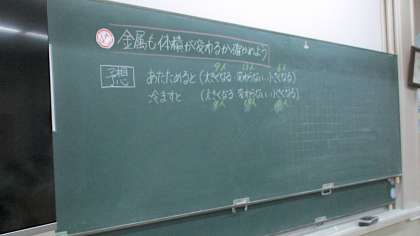 金属も体積が変わるか確かめよう
予想 あたためると(大きくなる 変わらない 小さくなる)
冷ますと (大きくなる 変わらない 小さくなる)